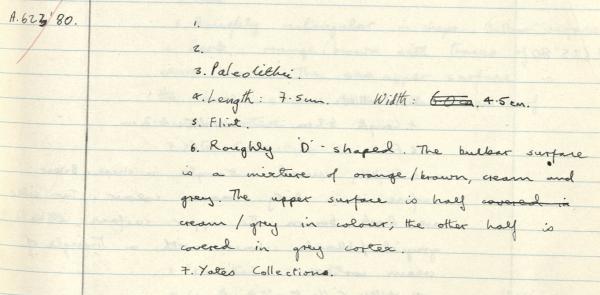 A.623'80.
1.
2.
3. Paleolithic.
4. Length: 7.5cm. Width: 4.5cm.
5. Flint.
6. Roughly 'D'-shaped. The bulbar surface
is a mixture of orange/brown, cream and
grey. The upper surface is half covered in
cream/grey in colour; the other half is
covered in grey cortex.
7. Yates Collection.